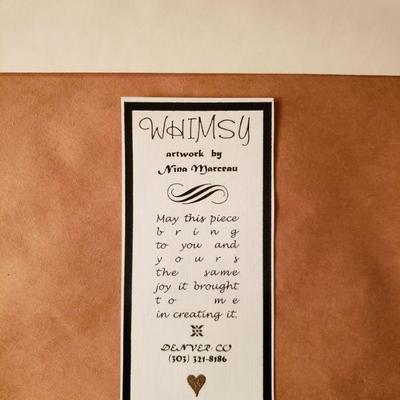 WHIMSY
artwork by
Nina Marceau
May this piece
bring
to you and
yours
the same
joy it brought
to me
in creating it.
DENVER, CO
(303) 321-8186